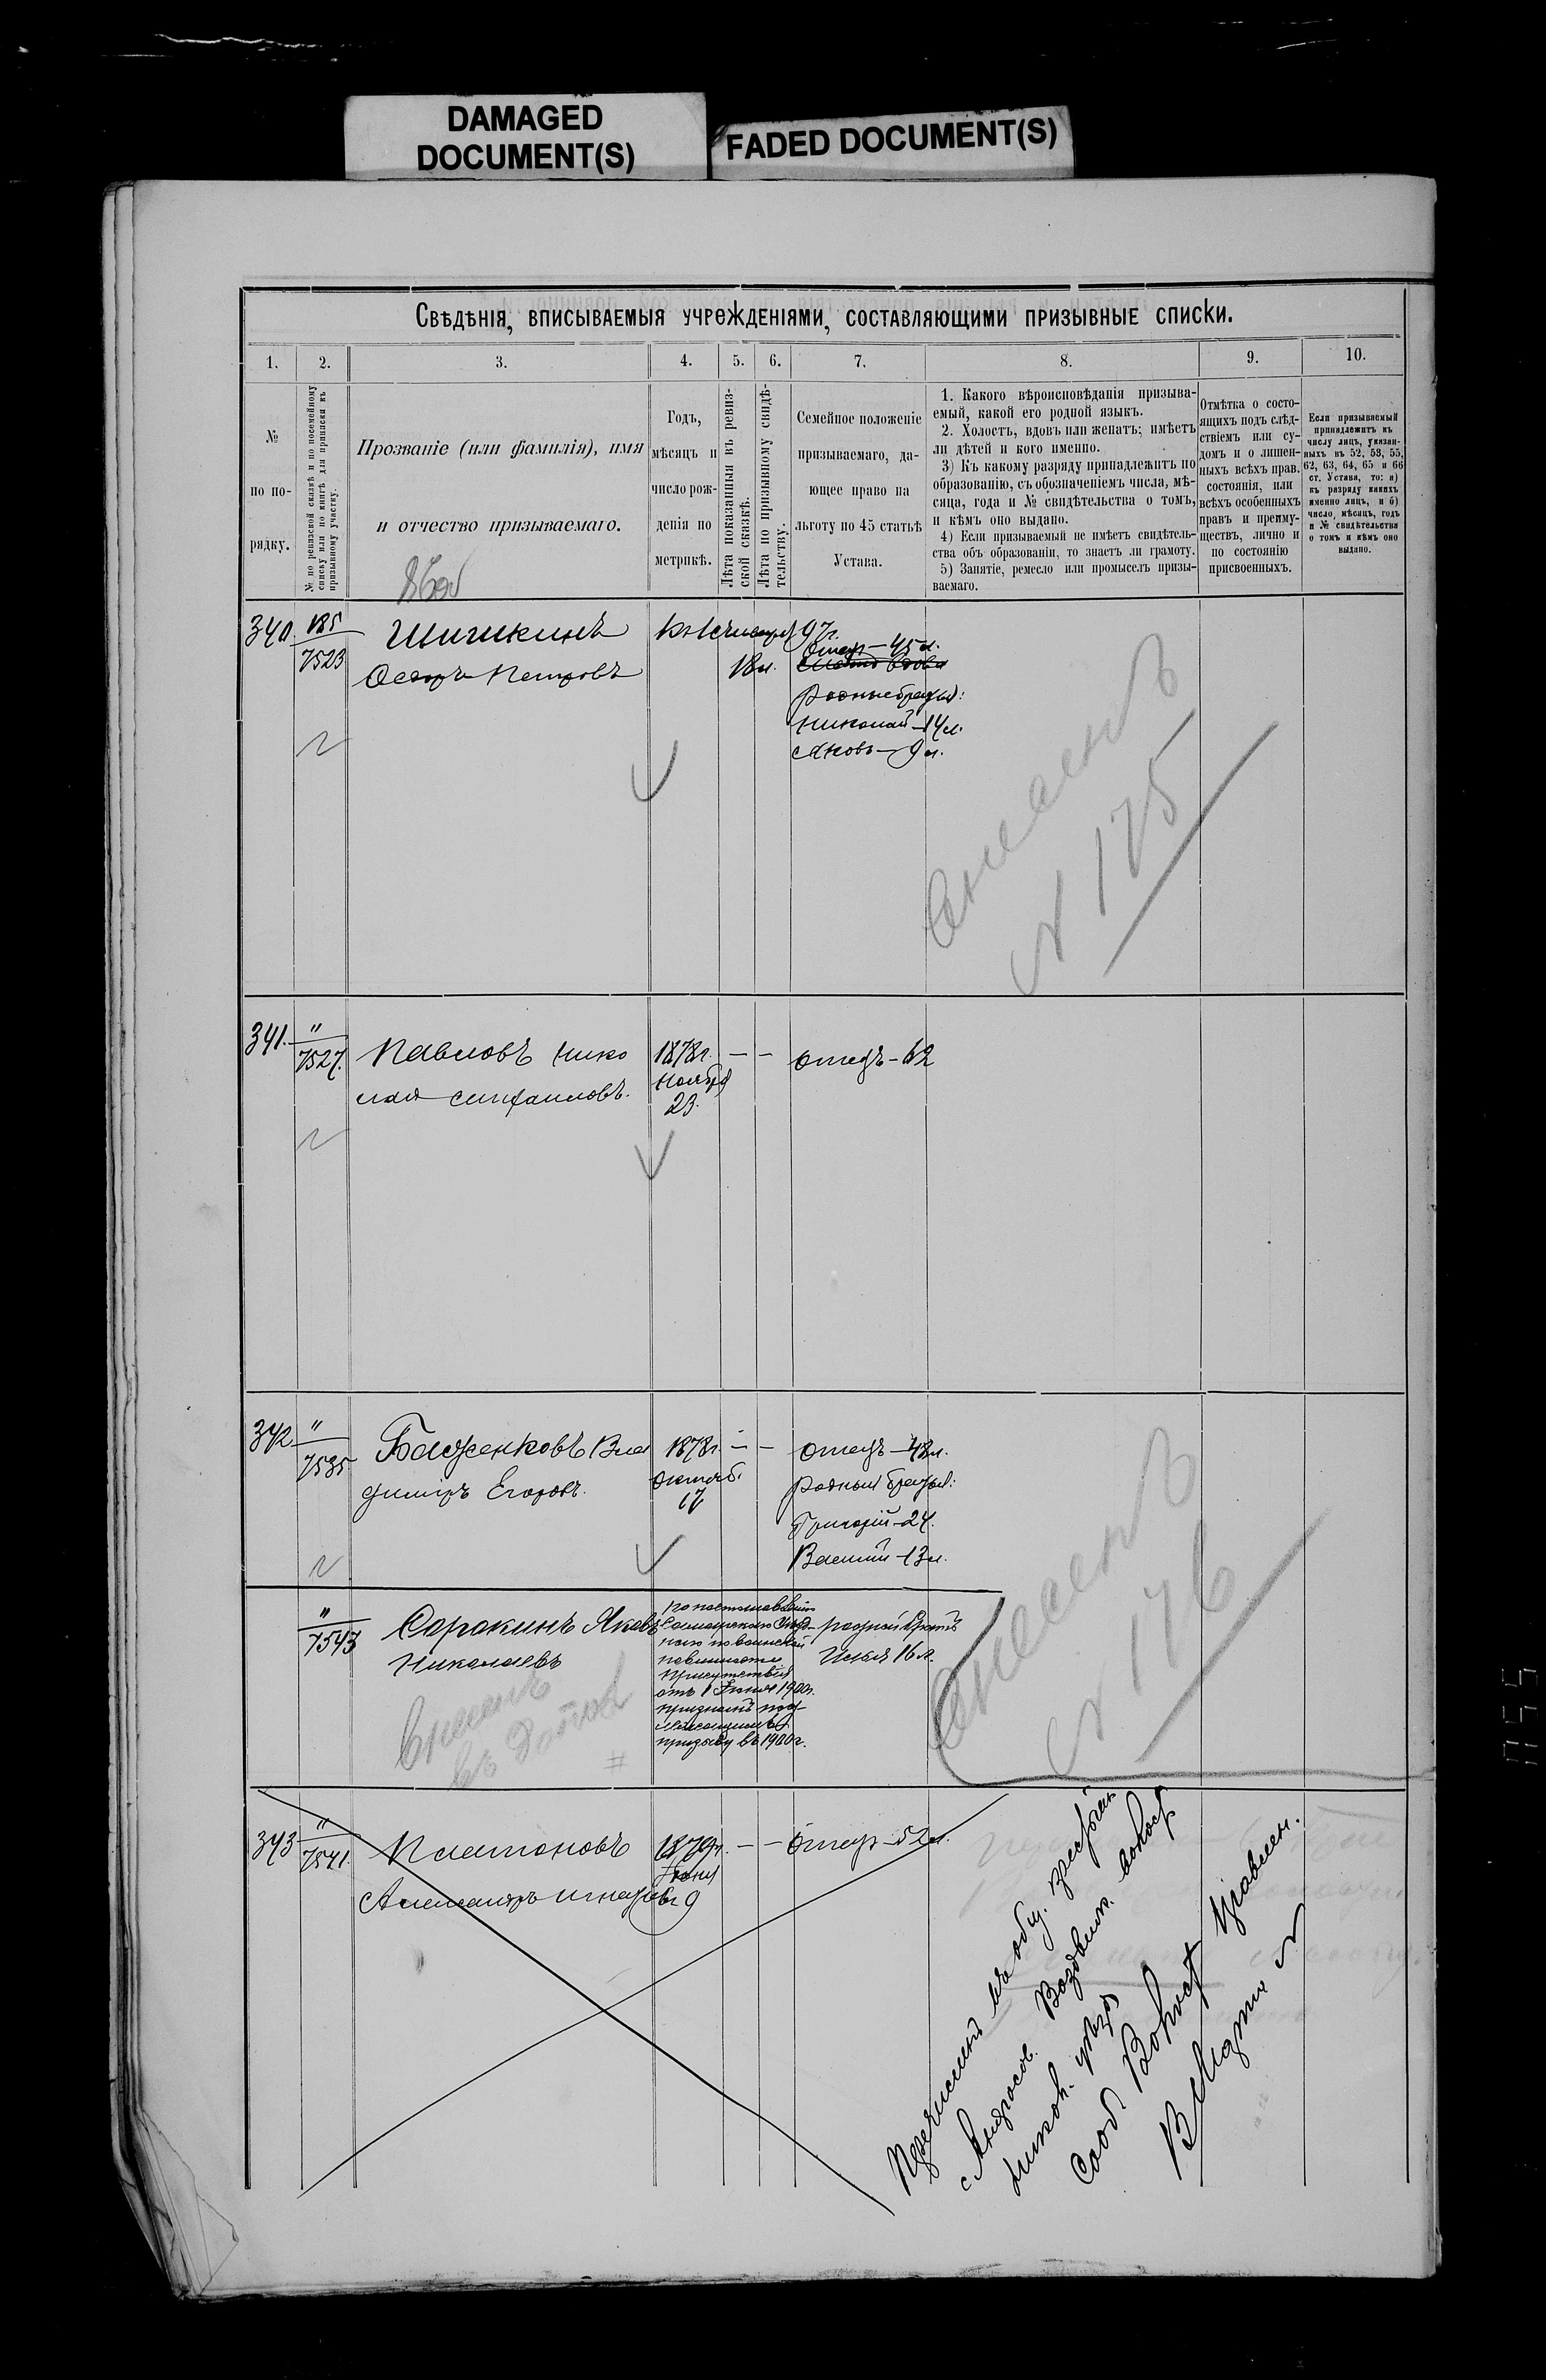 DAMAGED
DOCUMENT(S)
FADED DOCUMENT(S)
Свѣдѣнія, вписываемыя учрежденіями, составляющими призывные списки.
1. 2. 3. 4. 5. 6. 7. 8. 9. 10.
№
по по-
рядку.
№ по ревизской сказкѣ и по посемейному
списку или по книгѣ для приписки къ
призывному участку.
Прозваніе (или фамилія), имя
и отчество призываемаго.
Годъ,
мѣсяцъ и
число рож-
денія по
метрикѣ.
Лѣта показанныя въ ревиз-
ской сказкѣ.
Лѣта по призывному свидѣ-
тельству.
Семейное положеніе
призываемаго, да-
ющее право на
льготу по 45 статьѣ
Устава.
1. Какого вѣроисповѣданія призыва-
емый, какой его родной языкъ.
2. Холостъ, вдовъ или женатъ; имѣетъ
ли дѣтей и кого именно.
3) Къ какому разряду принадлежитъ по
образованію, съ обозначеніемъ числа, мѣ-
сяца, года и № свидѣтельства о томъ,
и кѣмъ оно выдано.
4) Если призываемый не имѣетъ свидѣтель-
ства объ образованіи, то знаетъ ли грамоту.
5) Занятіе, ремесло или промыселъ призы-
ваемаго.
Отмѣтка о состо-
ящихъ подъ слѣд-
ствіемъ или су-
домъ и о лишен-
ныхъ всѣхъ прав.
состоянія, или
всѣхъ особенныхъ
правъ и преиму-
ществъ, лично и
по состоянію
присвоенныхъ.
Если призываемый
принадлежитъ къ
числу лицъ, указан-
ныхъ въ 52, 53, 55,
62, 63, 64, 65 и 66
ст. Устава, то: а)
къ разряду какихъ
именно лицъ, и б)
число, мѣсяцъ, годъ
и № свидѣтельства
о томъ и кѣмъ оно
выдано.
340
185
7523
Шишкинъ
Ѳедоръ Петровъ
97г.
18л.
Отецъ – 45л.
родные братья:
Николай – 14л.
Яковъ – 9л.
Внесенъ
№ 175
341.
"
7527.
Павловъ Нико
лай
1878г.
Ноября
23.
— —
отецъ – 62
342
"
7535
Баженковъ Вла
диміръ Егоровъ.
1878г.
Октяб.
17
— —
отецъ – 48л.
родныя братья:
Григорій – 24.
Василій – 13л.
Внесенъ
№ 176
"
7543
Сорокинъ Яковъ
Николаевъ
По постановленію
Самарскаго Уѣзд-
наго по воинской
повинности
Присутствія
отъ 1 Іюня 1900г.
признанъ под-
лежащимъ
призыву въ 1900г.
родной братъ
Илья 16л.
343
"
7541.
Платоновъ
Александръ Игнатьевъ
1879г.
Іюня
9
— —
Отецъ – 52л.
Перечисленъ въ общ. крестьян
с. Андросов. Воздвиж. волост
Никол. уѣзда
Сооб. Волост Правлен.